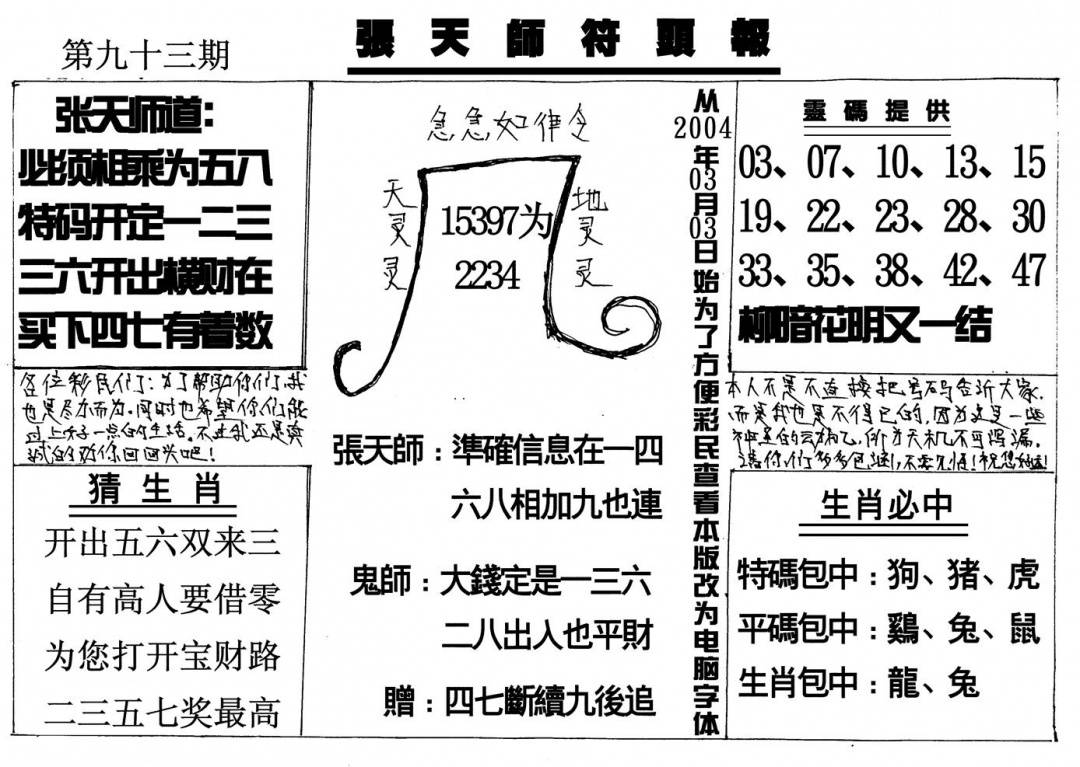 第九十三期
張天師符頭報
张天师道：
必须相乘为五八
特码开定一二三
三六开出横财在
买下四七有着数
各位彩民们：为了帮助你们，我
也是尽力而为。同时也希望你们能
过上好一点的生活。不过我还是真
诚的劝你回回头吧！
猜生肖
开出五六双来三
自有高人要借零
为您打开宝财路
二三五七奖最高
急急如律令
天灵灵
地灵灵
15397为
2234
張天師：準確信息在一四
六八相加九也連
鬼師：大錢定是一三六
二八出入也平財
贈：四七斷續九後追
从2004年03月03日始为了方便彩民查看本版改为电脑字体
靈碼提供
03、07、10、13、15
19、22、23、28、30
33、35、38、42、47
柳暗花明又一结
本人不是不直接把号码告诉大家，
而是我也是不得已的，因为这是一些
神圣的玄机，所为天机不可泄漏。
请你们多多包涵，不要见怪！祝您利运！
生肖必中
特碼包中：狗、猪、虎
平碼包中：鷄、兔、鼠
生肖包中：龍、兔